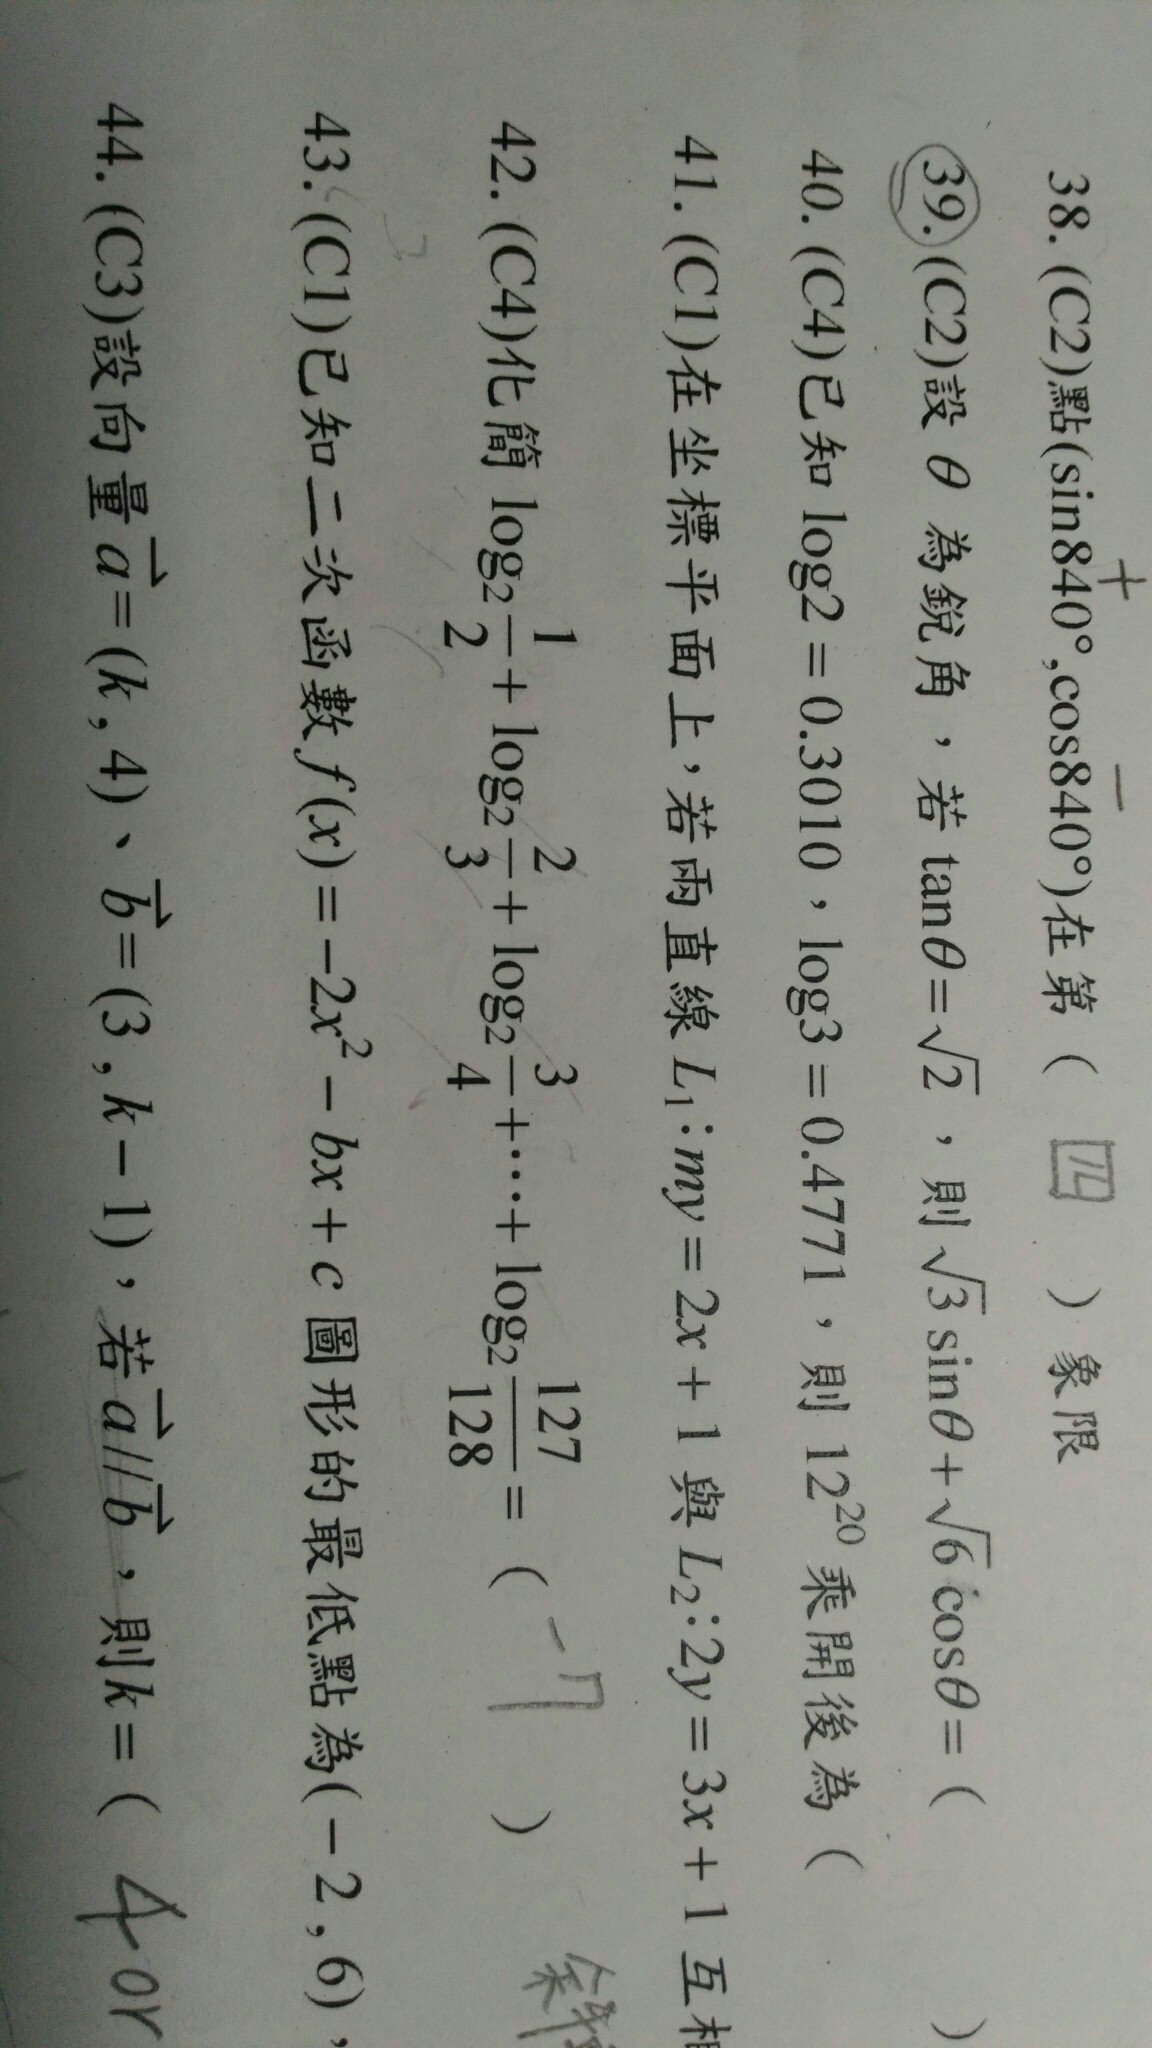 38.(C2)點(sin840°,cos840°)在第( 四 )象限
+ −
39.(C2)設 θ 為銳角，若tanθ=√2，則√3sinθ+√6cosθ=( )
40.(C4)已知 log2=0.3010，log3=0.4771，則 12²⁰ 乘開後為(
41.(C1)在坐標平面上，若兩直線 L₁:my=2x+1 與 L₂:2y=3x+1 互相
42.(C4)化簡 log₂1/2+log₂2/3+log₂3/4+⋯+log₂127/128=( -7 )
43.(C1)已知二次函數 f(x)=-2x²-bx+c 圖形的最低點為(-2,6)，
44.(C3)設向量a⃗=(k,4)、b⃗=(3,k-1)，若a⃗//b⃗，則k=( 4 or